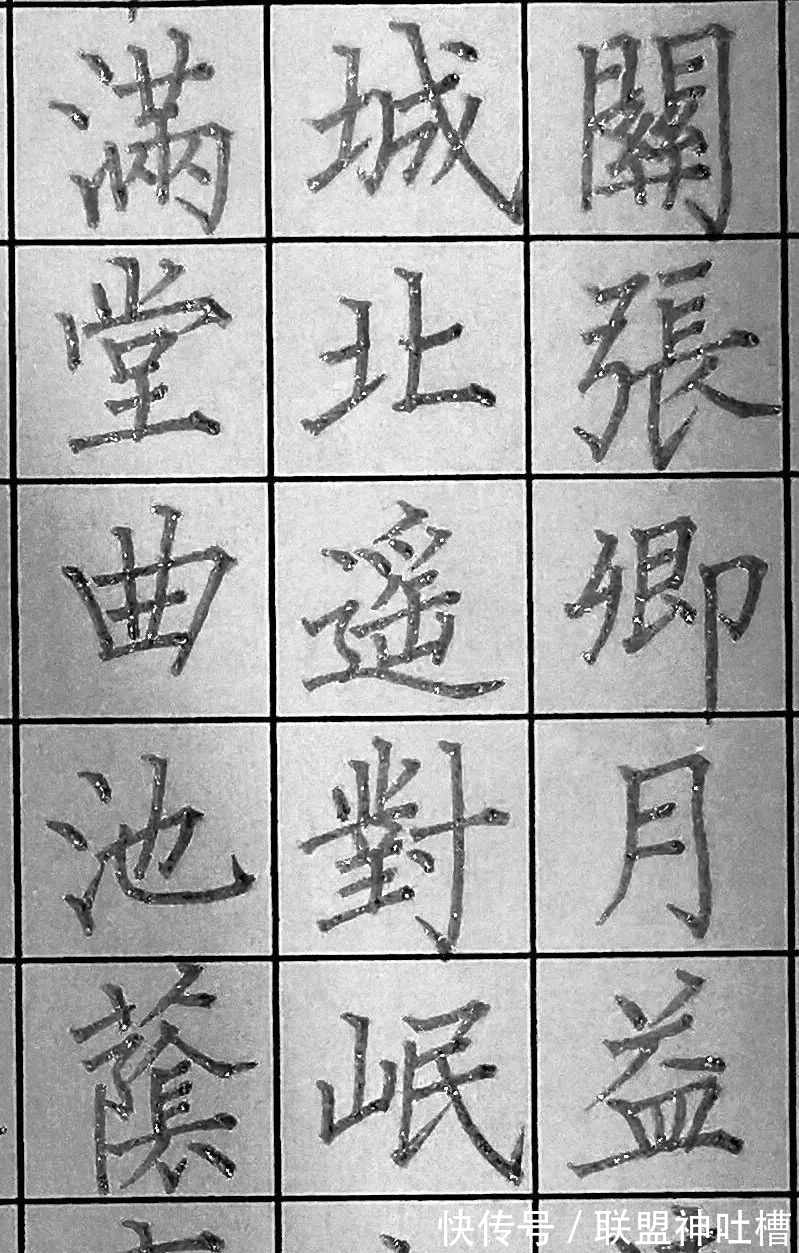 關張卿月益
城北遙對岷
滿堂曲池
快传号 / 联盟神吐槽